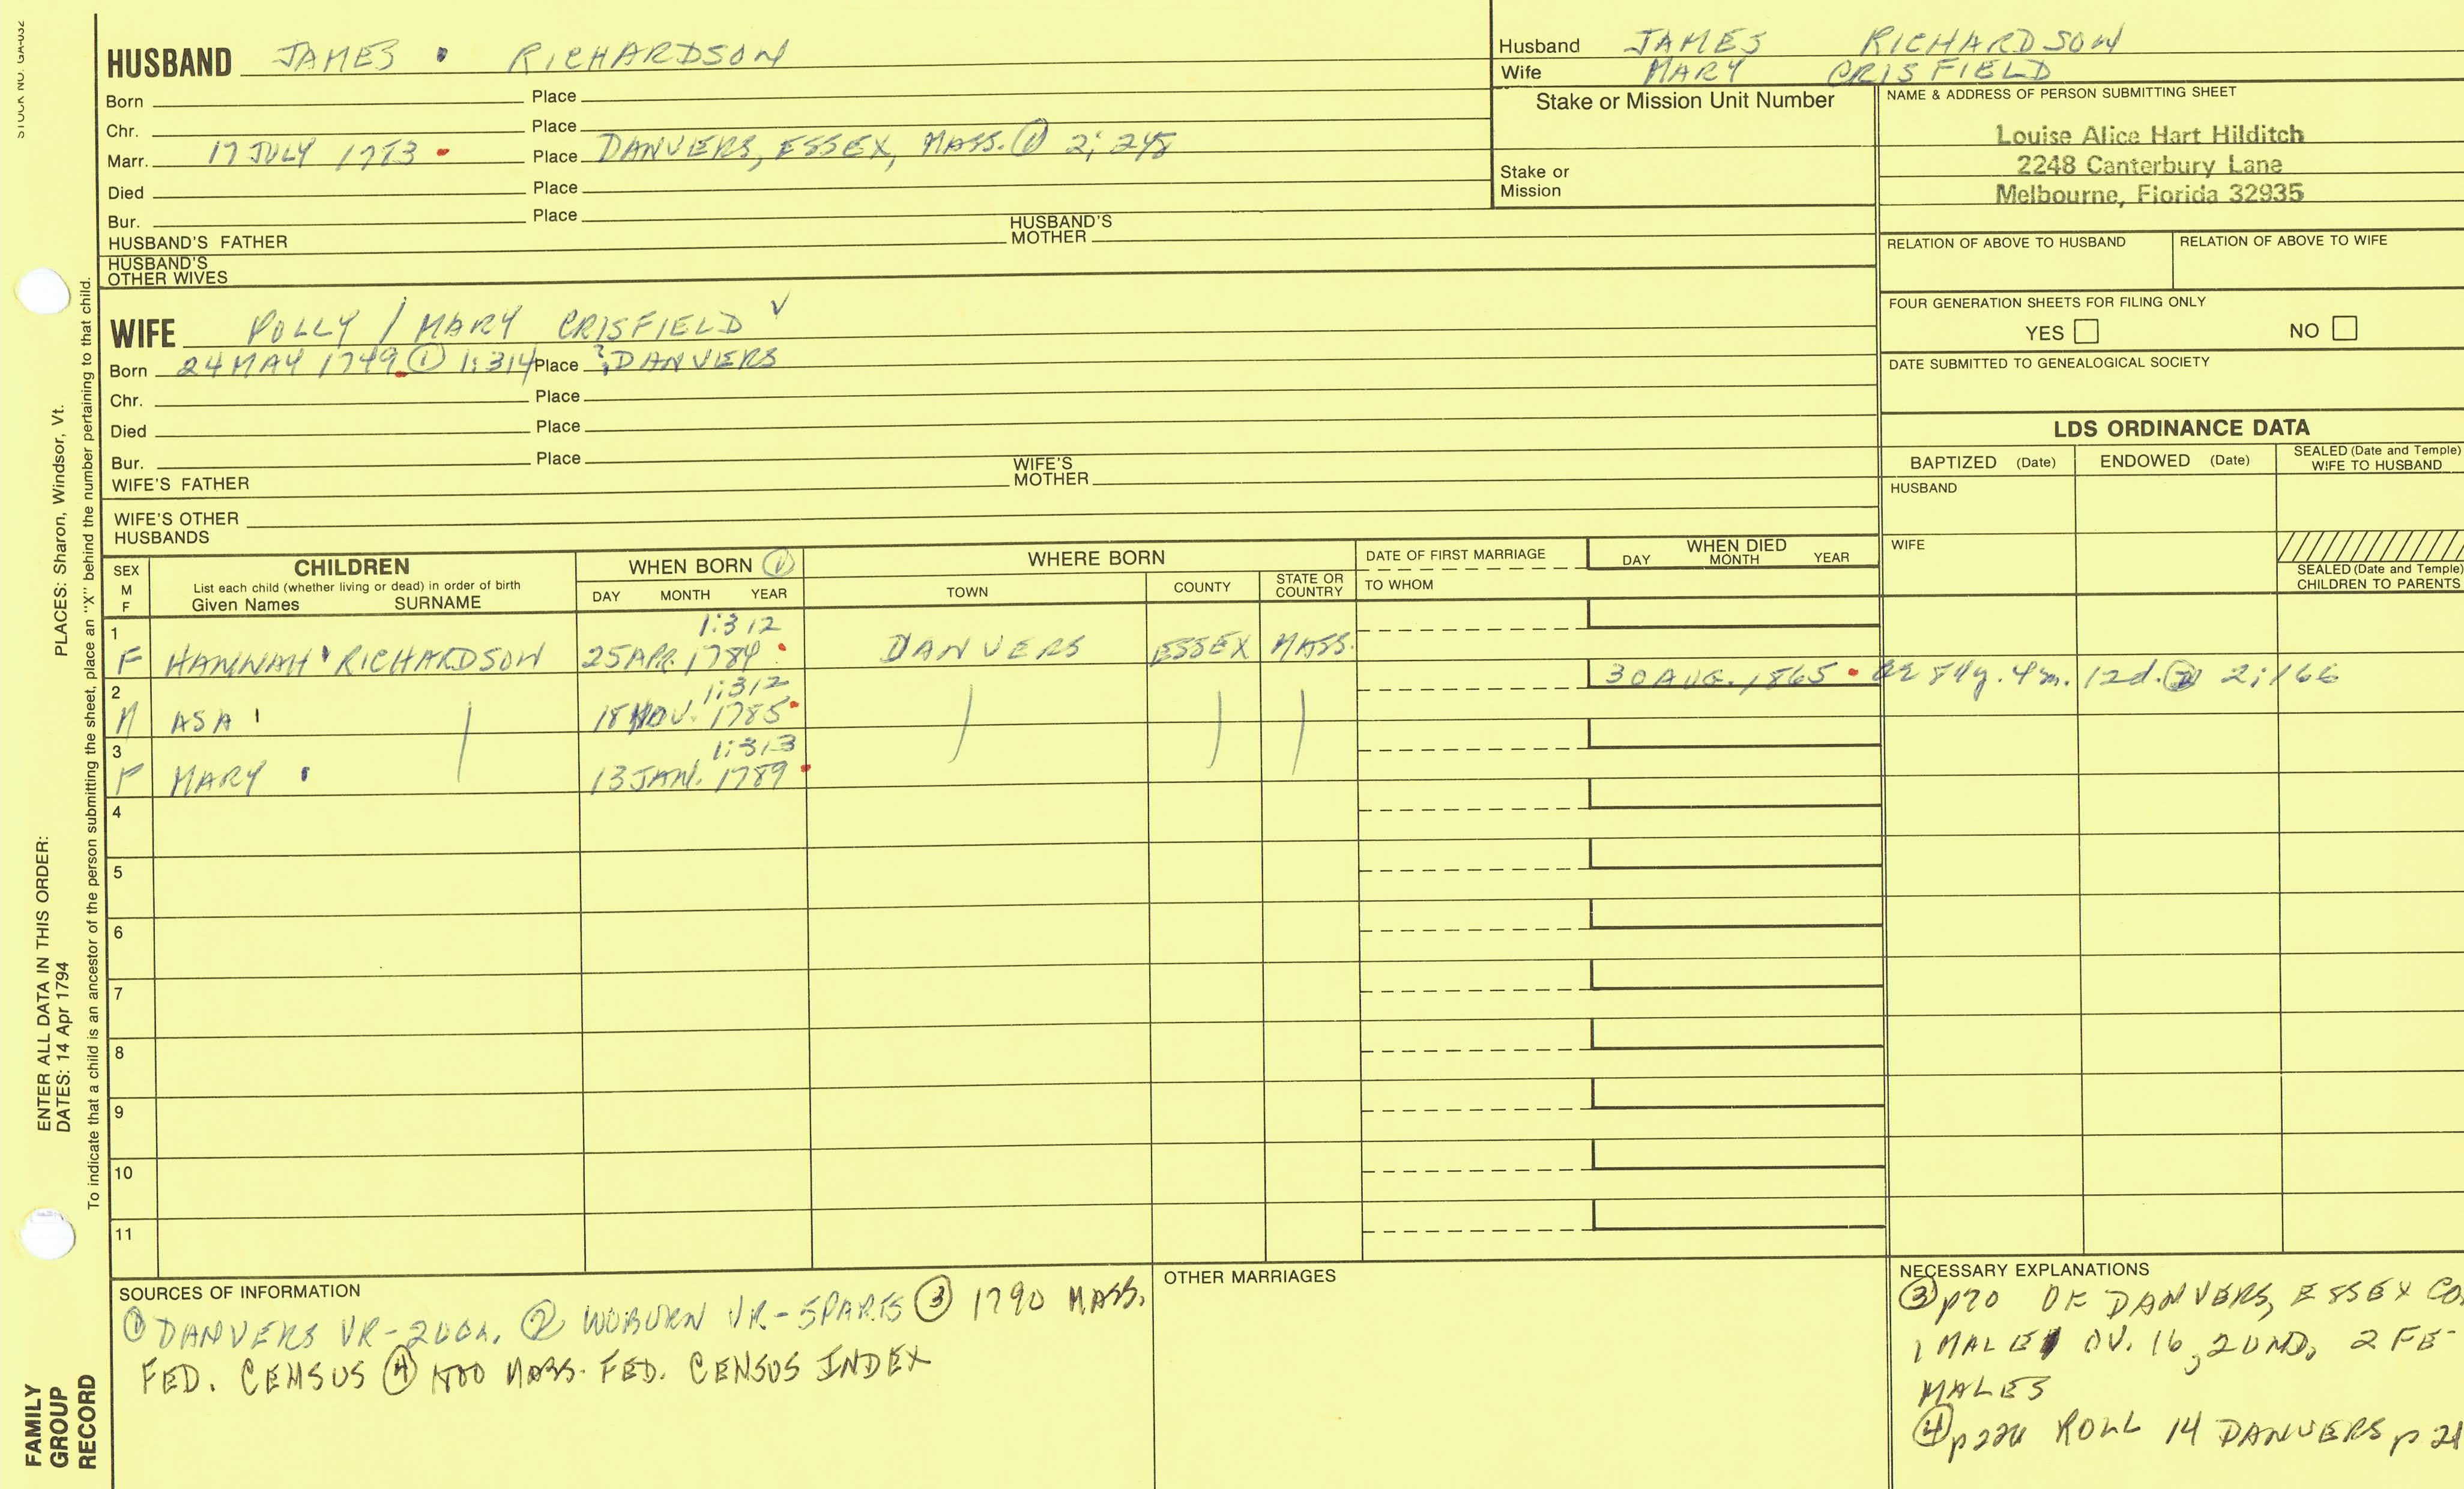 STOCK NO. GA-032
HUSBAND JAMES RICHARDSON
Born Place
Chr. Place
Marr. 17 JULY 1783 Place DANVERS, ESSEX, MASS. ① 2; 245
Died Place
Bur. Place
HUSBAND'S FATHER HUSBAND'S MOTHER
HUSBAND'S OTHER WIVES
Husband JAMES RICHARDSON
Wife MARY CRISFIELD
Stake or Mission Unit Number
Stake or Mission
NAME & ADDRESS OF PERSON SUBMITTING SHEET
Louise Alice Hart Hilditch
2248 Canterbury Lane
Melbourne, Florida 32935
RELATION OF ABOVE TO HUSBAND RELATION OF ABOVE TO WIFE
FOUR GENERATION SHEETS FOR FILING ONLY
YES NO
DATE SUBMITTED TO GENEALOGICAL SOCIETY
WIFE POLLY / MARY CRISFIELD
Born 24 MAY 1749 ① 1:314 Place ? DANVERS
Chr. Place
Died Place
Bur. Place
WIFE'S FATHER WIFE'S MOTHER
WIFE'S OTHER HUSBANDS
LDS ORDINANCE DATA
BAPTIZED (Date) ENDOWED (Date) SEALED (Date and Temple) WIFE TO HUSBAND
HUSBAND
WIFE
SEALED (Date and Temple) CHILDREN TO PARENTS
SEX M F
CHILDREN
List each child (whether living or dead) in order of birth
Given Names SURNAME
WHEN BORN ①
DAY MONTH YEAR
WHERE BORN
TOWN COUNTY STATE OR COUNTRY
DATE OF FIRST MARRIAGE
TO WHOM
WHEN DIED
DAY MONTH YEAR
1 1:312
F HANNAH RICHARDSON 25 APR. 1784 DANVERS ESSEX MASS.
2 1:312 30 AUG. 1865 84y. 4m. 12d. ② 2;166
M ASA 18 NOV. 1785
3 1:313
F MARY 13 JAN. 1789
4
5
6
7
8
9
10
11
SOURCES OF INFORMATION
① DANVERS VR- ② WOBURN VR-5PARTS ③ 1790 MASS.
FED. CENSUS ④ 1800 MASS. FED. CENSUS INDEX
OTHER MARRIAGES
NECESSARY EXPLANATIONS
③ p70 OF DANVERS, ESSEX CO.
1 MALE OV. 16, 2 UND, 2 FE-
MALES
④ ROLL 14 DANVERS
ENTER ALL DATA IN THIS ORDER:
DATES: 14 Apr 1794 PLACES: Sharon, Windsor, Vt.
To indicate that a child is an ancestor of the person submitting the sheet, place an "X" behind the number pertaining to that child.
FAMILY
GROUP
RECORD